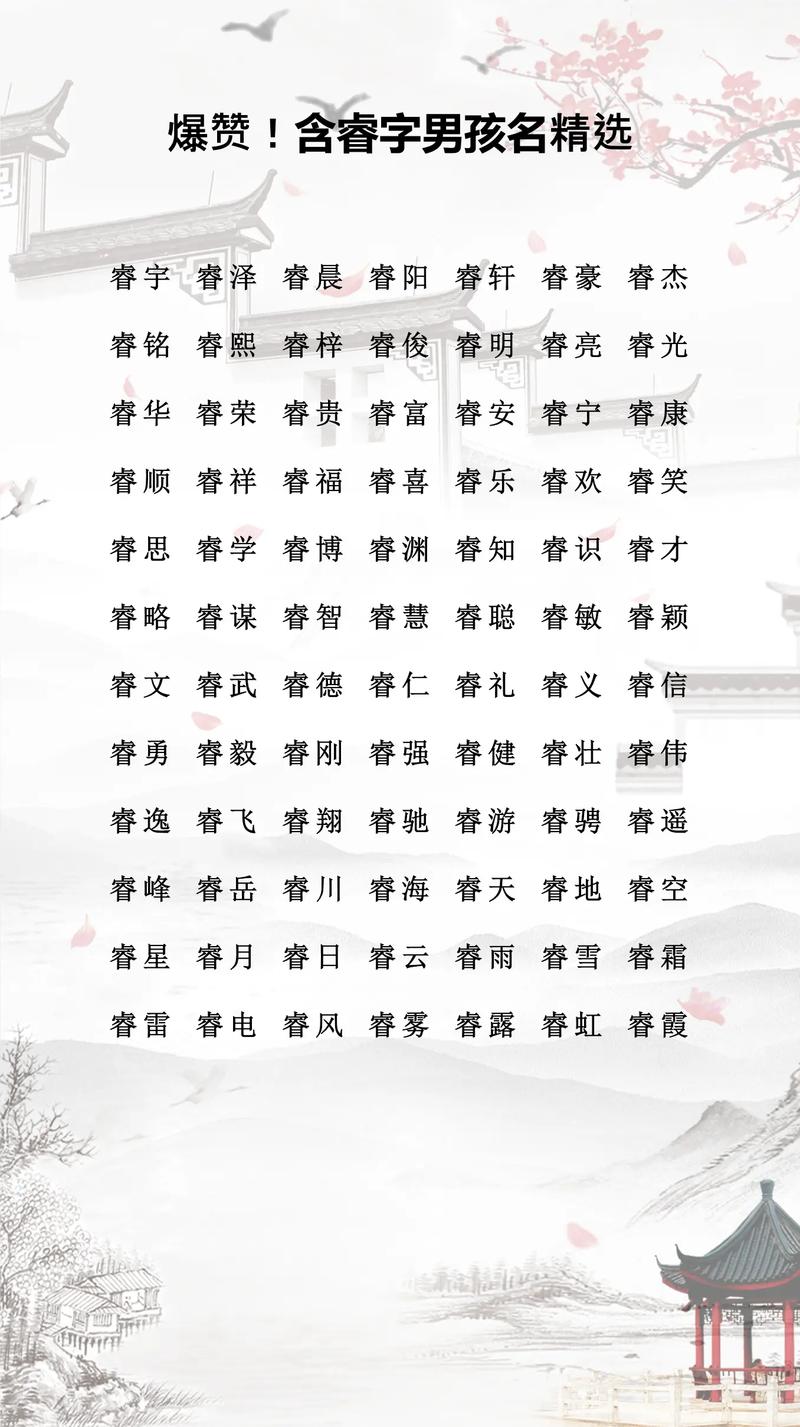 爆赞！含睿字男孩名精选
睿宇 睿泽 睿晨 睿阳 睿轩 睿豪 睿杰
睿铭 睿熙 睿梓 睿俊 睿明 睿亮 睿光
睿华 睿荣 睿贵 睿富 睿安 睿宁 睿康
睿顺 睿祥 睿福 睿喜 睿乐 睿欢 睿笑
睿思 睿学 睿博 睿渊 睿知 睿识 睿才
睿略 睿谋 睿智 睿慧 睿聪 睿敏 睿颖
睿文 睿武 睿德 睿仁 睿礼 睿义 睿信
睿勇 睿毅 睿刚 睿强 睿健 睿壮 睿伟
睿逸 睿飞 睿翔 睿驰 睿游 睿骋 睿遥
睿峰 睿岳 睿川 睿海 睿天 睿地 睿空
睿星 睿月 睿日 睿云 睿雨 睿雪 睿霜
睿雷 睿电 睿风 睿雾 睿露 睿虹 睿霞